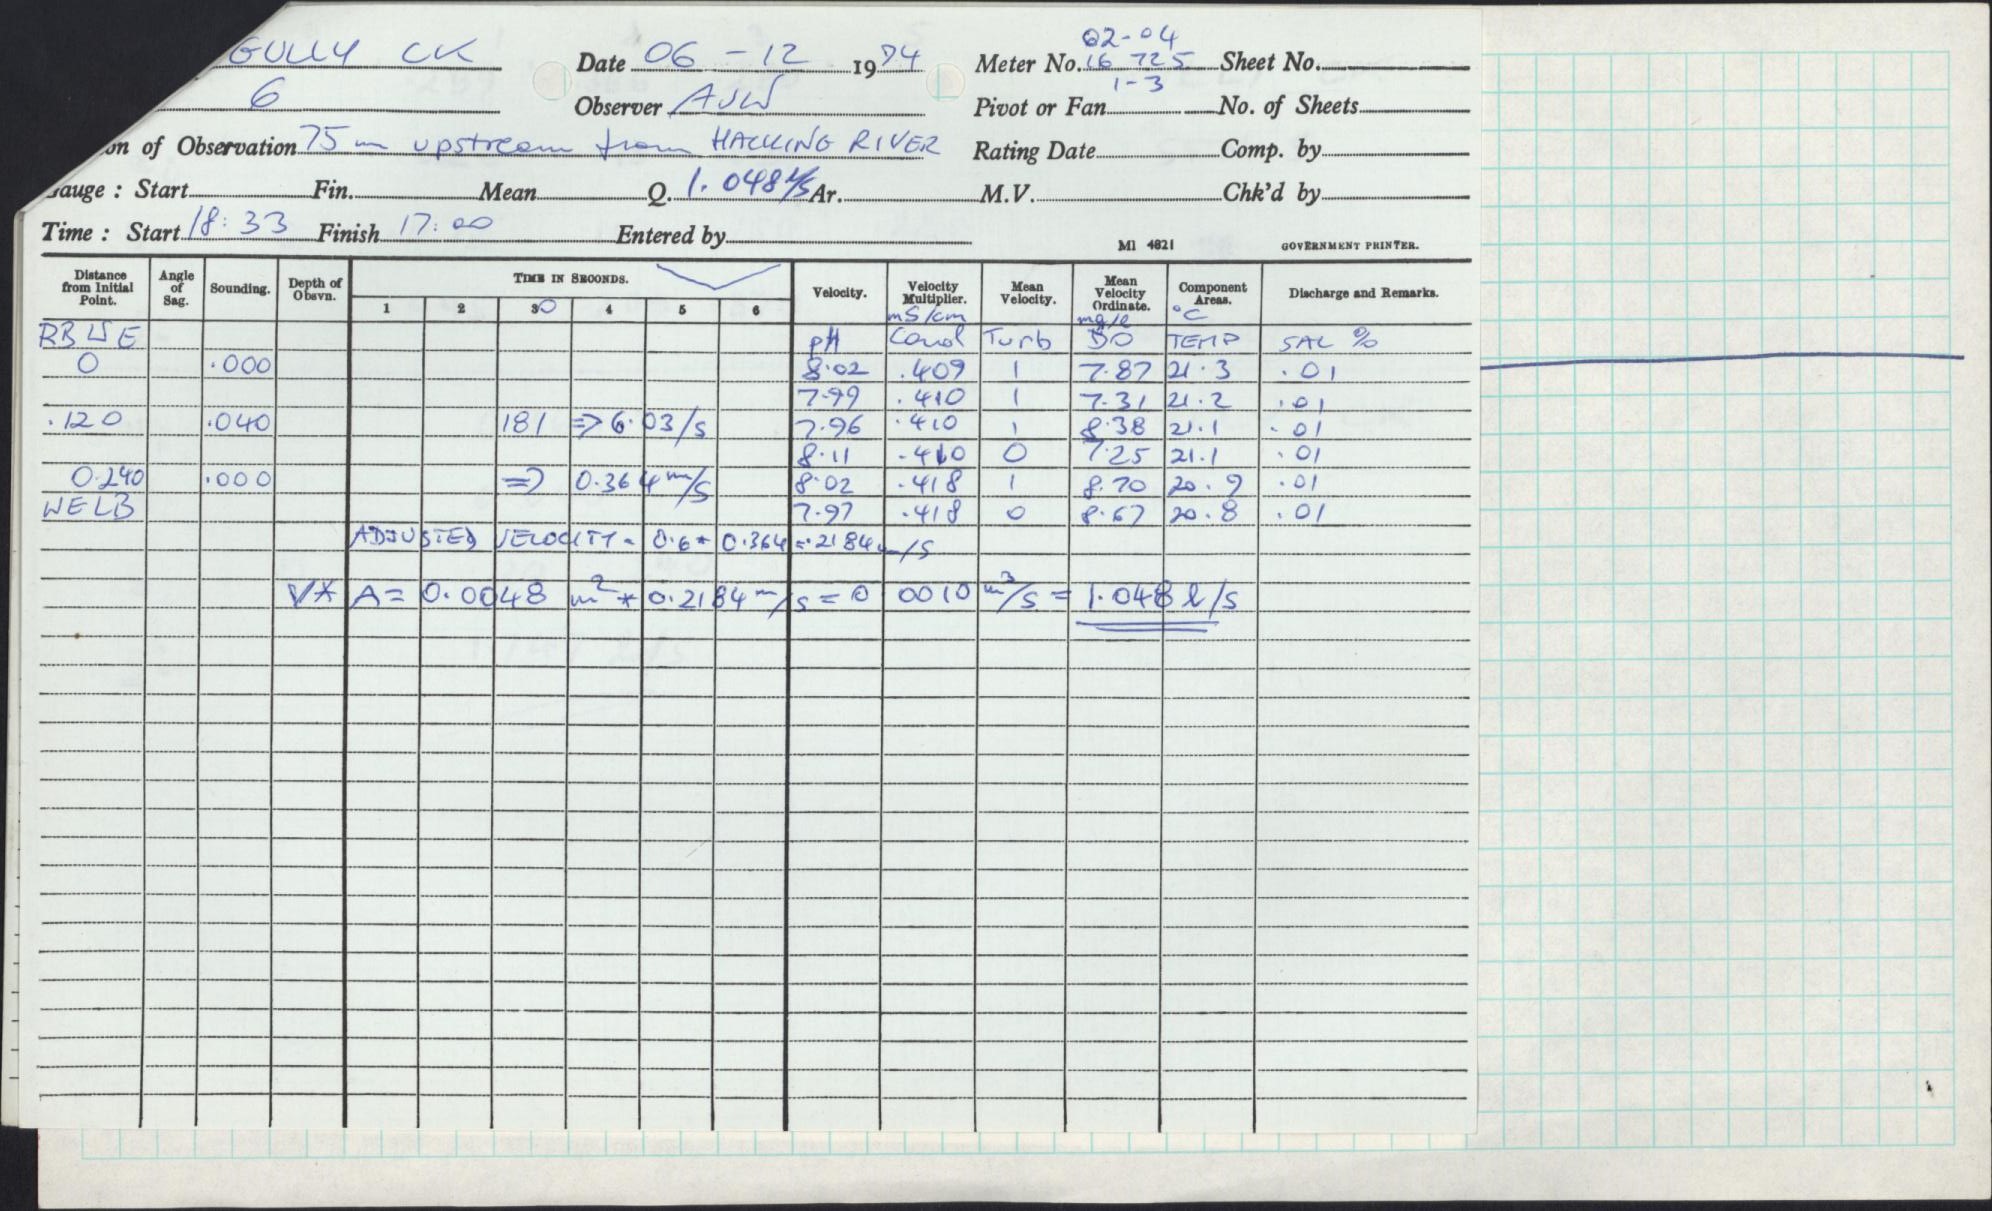 GULLY CK Date 06 - 12 1994 Meter No. 02-04 16 725 Sheet No.
6 Observer AJW Pivot or Fan 1-3 No. of Sheets
on of Observation 75 m upstream from HACKING RIVER Rating Date Comp. by
Gauge : Start Fin. Mean Q. 1.048 l/s Ar. M.V. Chk'd by
Time : Start 18:33 Finish 17:00 Entered by MI 4821 GOVERNMENT PRINTER.
Distance from Initial Point. Angle of Sag. Sounding. Depth of Obsvn. TIME IN SECONDS. Velocity. Velocity Multiplier. Mean Velocity. Mean Velocity Ordinate. Component Areas. Discharge and Remarks.
1 2 30 4 5 6 mS/cm mg/l °C
RBWE pH Cond Turb DO TEMP SAL %
0 .000 8.02 .409 1 7.87 21.3 .01
7.99 .410 1 7.31 21.2 .01
.120 .040 181 => 6.03/s 7.96 .410 1 8.38 21.1 .01
8.11 .410 0 7.25 21.1 .01
0.240 .000 => 0.364 m/s 8.02 .418 1 8.70 20.9 .01
WELB 7.97 .418 0 8.67 20.8 .01
ADJUSTED VELOCITY = 0.6 * 0.364 = .2184 m/s
V* A = 0.0048 m² * 0.2184 m/s = 0 0010 m³/s = 1.048 l/s